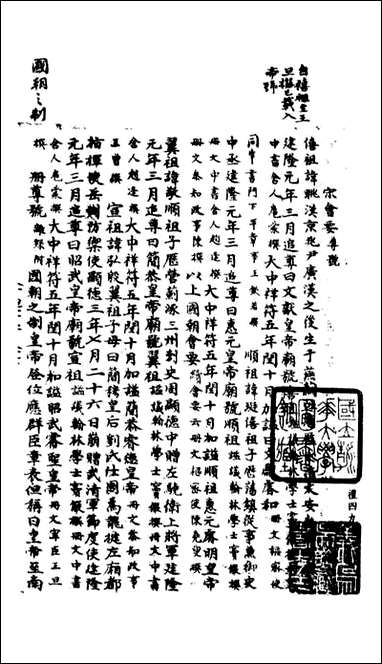 國朝之制
自僖祖至王
旦撰已載入
帝號
宋會要尊號
僖祖諱朓漢京兆尹廣漢之後生于燕
建隆元年三月追尊曰文獻皇帝廟號僖祖
中書舍人危素撰大中祥符五年閏十月加諡曰文獻睿和冊文
同中書門下平章事王欽若撰 順祖諱珽僖祖子歷藩鎮從事兼御史
中丞建隆元年三月追尊曰惠元皇帝廟號順祖諡議翰林學士竇儼撰
冊文中書舍人趙逢撰大中祥符五年閏十月加諡順祖惠元睿明皇帝
冊文參知政事陳撰以上國朝會要續會要云冊文
翼祖諱敬順祖子歷營薊涿三州刺史周顯德中贈左驍衛上將軍建隆
元年三月追尊曰簡恭皇帝廟號翼祖諡議翰林學士竇儼撰冊文中書
舍人趙逢撰大中祥符五年閏十月加諡簡恭睿德皇帝冊文參知政事
王曾撰 宣祖諱弘殷翼祖子母曰簡穆皇后劉氏仕周為龍捷左廂都
指揮使岳州防禦使顯德三年七月二十六日薨贈武清軍節度使建隆
元年三月追尊曰昭武皇帝廟號宣祖諡議翰林學士竇儼撰冊文中書
舍人危素撰大中祥符五年閏十月加諡昭武睿聖皇帝冊文宰臣王旦
撰 冊尊號 國朝之制皇帝登位應群臣章表但稱曰皇帝至南
禮四九